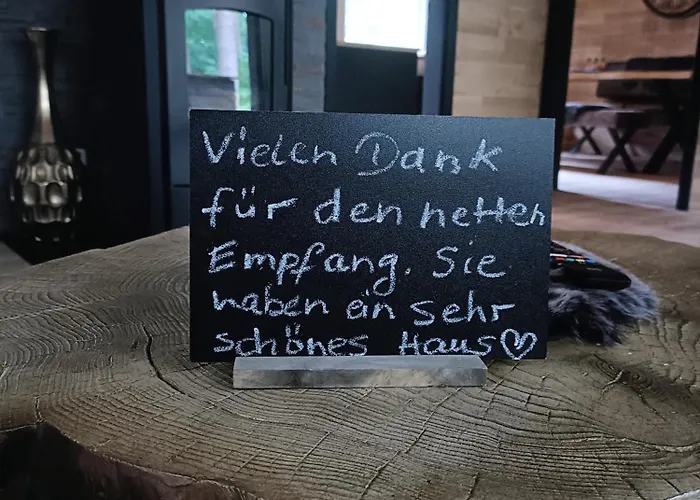 Vielen Dank
für den netten
Empfang. Sie
haben ein sehr
schönes Haus♡